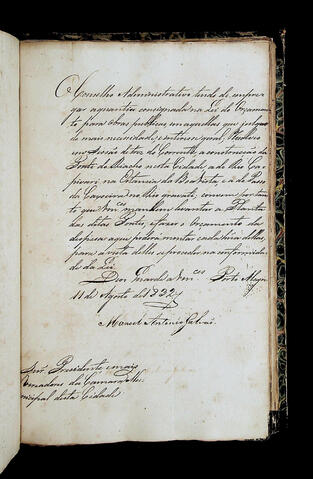 O Conselho Administrativo tendo de empre-
gar a quantia consignada na Lei do Orçamen-
to para obras publicas em aquellas que julgar
de mais necessidade, e interesse geral,
em Sessão de do Corrente, a construcção da
Ponte do Riacho nesta Cidade, a do Rio Ca-
hi na Estancia da e a do Passo
da Cavera no Rio convem por tan-
to que Vm.ces mandem levantar a Planta
das ditas Pontes, e fazer o Orçamento da
despeza a que poderá montar cada huma dellas,
para á vista delles se proceder na conformida-
de da Lei.
Deos Guarde a Vm.ces Porto Alegre
11 de Agosto de 1832
Manoel Antonio Galvão
Snr.es Presidente e mais
Vereadores da Camara Mu-
nicipal desta Cidade